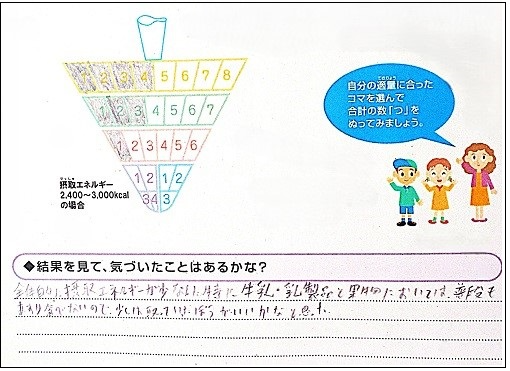 1 2 3 4 5 6 7 8
1 2 3 4 5 6 7
1 2 3 4 5 6
1 2 1 2
3 4 3
せっしゅ
摂取エネルギー
2,400～3,000kcal
の場合
てきりょう
自分の適量に合った
コマを選んで
合計の数「つ」を
ぬってみましょう。
◆結果を見て、気づいたことはあるかな？
全体的に、摂取エネルギーが少 特に牛乳・乳製品と果物においては、普段も
ないので、少しは取って ほうがいいかなと思った